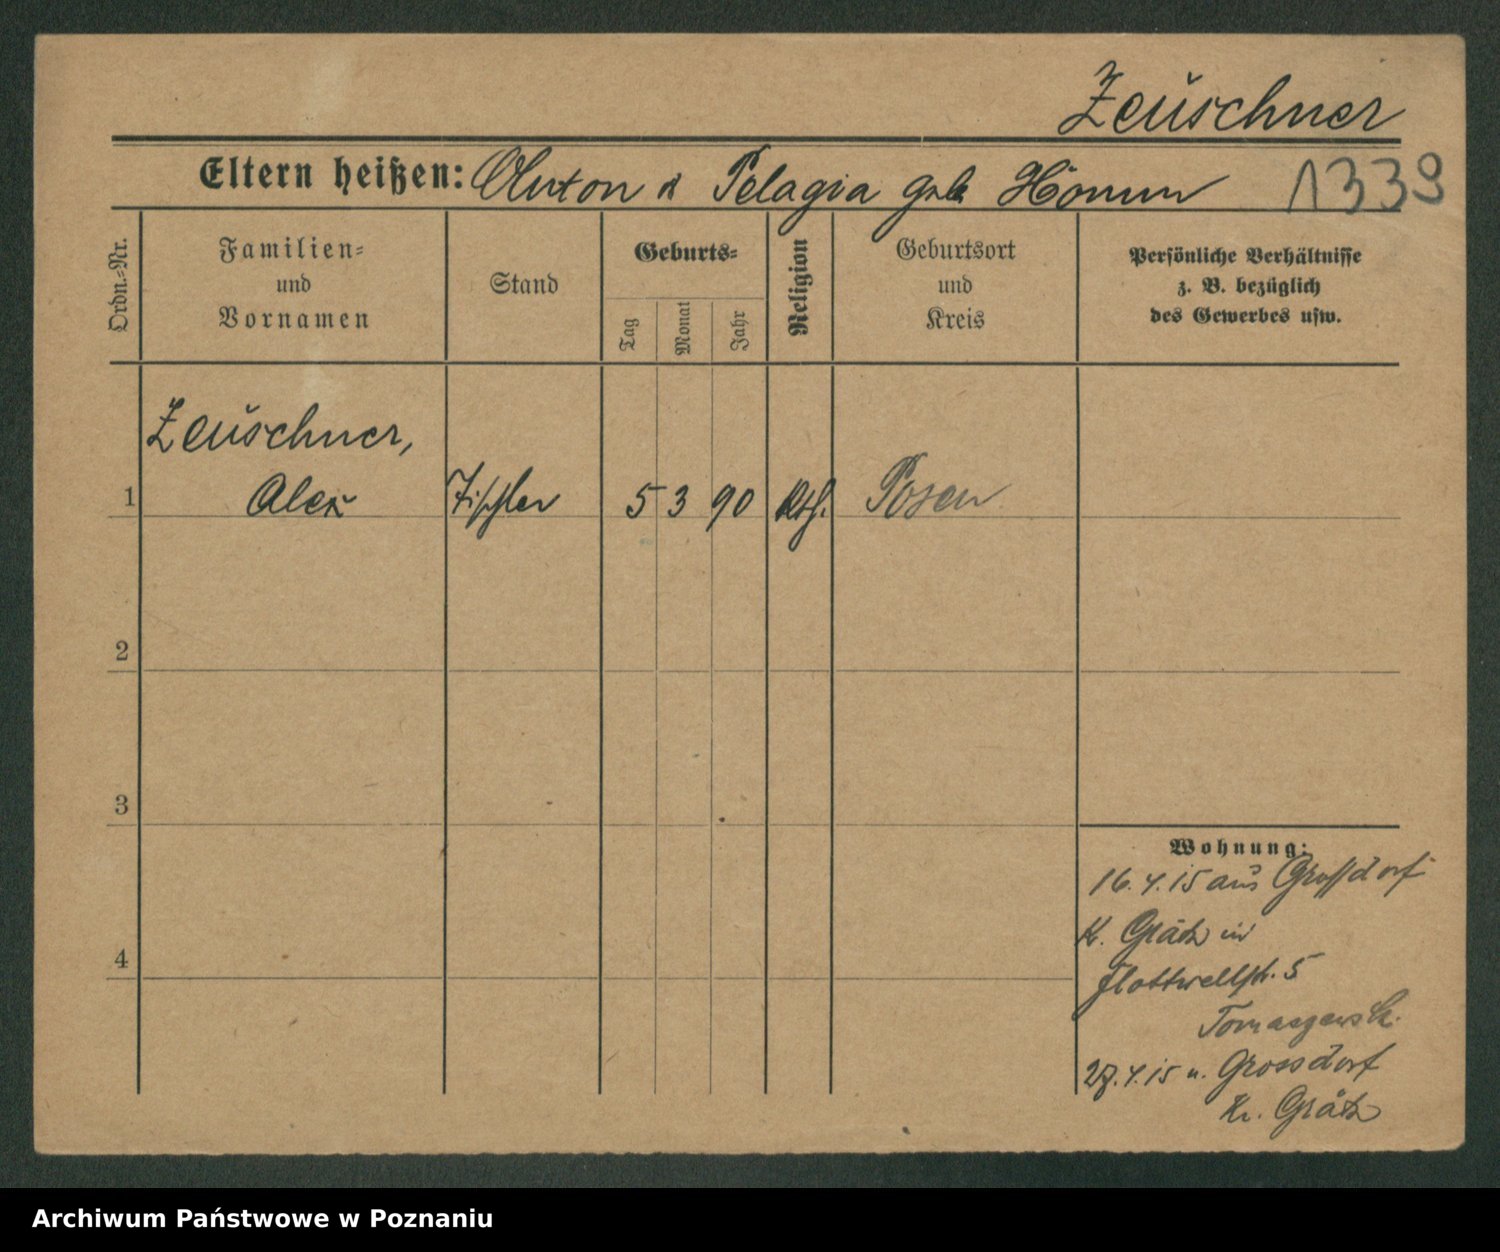 Zeuschner
Eltern heißen: Anton u Pelagia geb
1339
Ordn.-Nr.
Familien-
und
Vornamen
Stand
Geburts-
Tag
Monat
Jahr
Religion
Geburtsort
und
Kreis
Persönliche Verhältnisse
z. B. bezüglich
des Gewerbes usw.
Zeuschner,
1 Alex Tischler 5 3 90 kth. Posen
2
3
4
Wohnung:
16.4.15 aus Grossdorf
Kr. Grätz in
Flottwellstr. 5
27.4.15 n. Grossdorf
Kr. Grätz
Archiwum Państwowe w Poznaniu